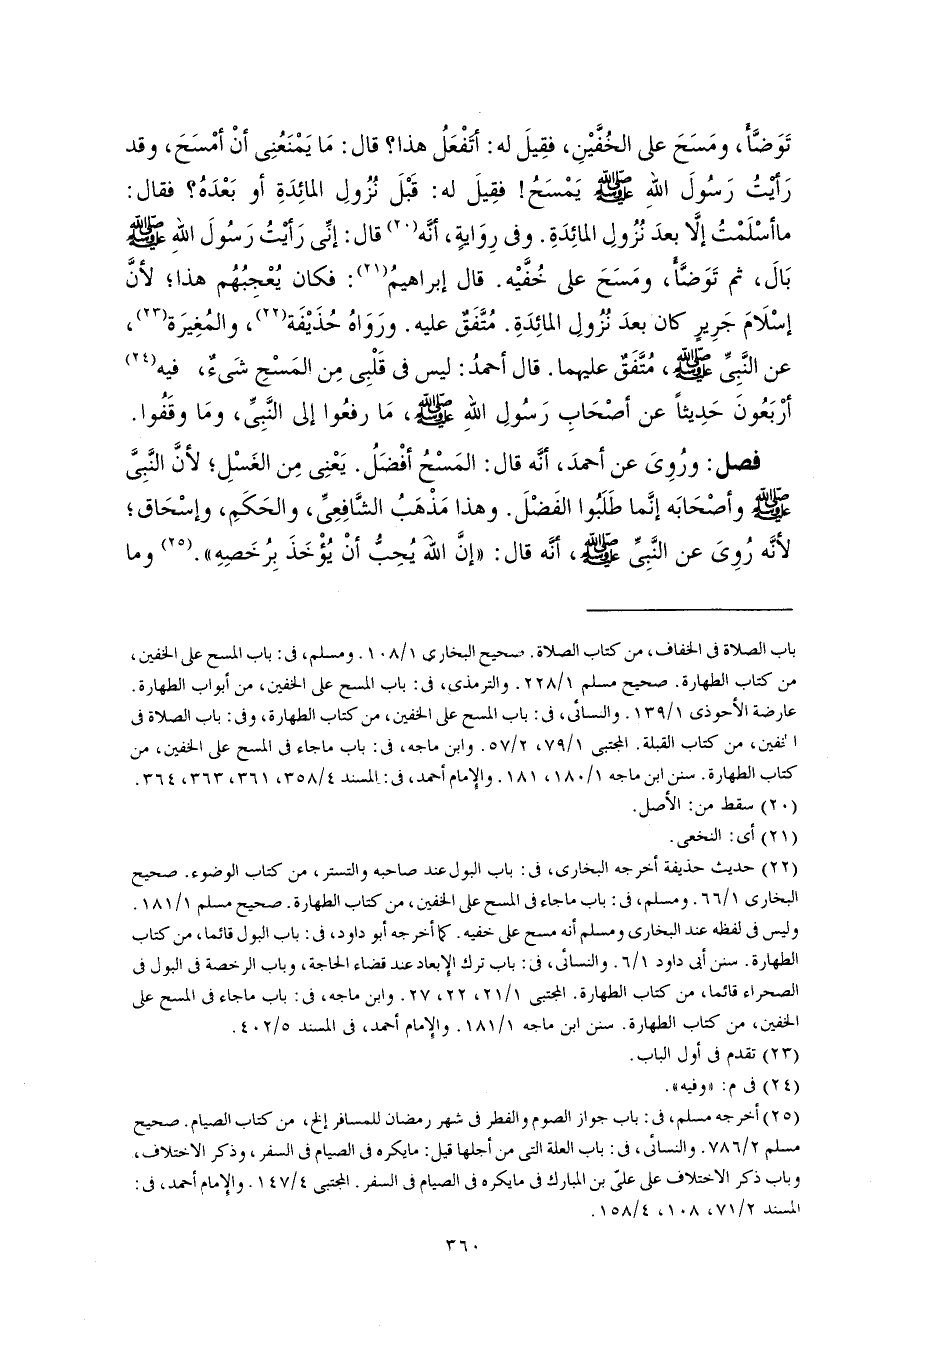 تَوَضَّأَ، ومَسَحَ على الخُفَّيْنِ، فقِيلَ له: أتَفْعَلُ هذا؟ قال: مَا يَمْنَعُنِى أنْ أمْسَحَ، وقد
رَأيْتُ رَسُولَ اللهِ ﷺ يَمْسَحُ! فقِيلَ له: قَبْلَ نُزُولِ المائِدَةِ أو بَعْدَهُ؟ فقال:
ماأسْلَمْتُ إلَّا بعدَ نُزُولِ المائِدَةِ. وفى رِوايةٍ، أنَّه(٢٠) قال: إنِّى رَأيْتُ رَسُولَ اللهِ ﷺ
بَالَ، ثم تَوَضَّأَ، ومَسَحَ على خُفَّيْه. قال إبراهيمُ(٢١): فكان يُعْجِبُهُم هذا؛ لأنَّ
إسْلَامَ جَرِيرٍ كان بعدَ نُزُولِ المائِدَةِ. مُتَّفَقٌ عليه. ورَوَاهُ حُذَيْفَة(٢٢)، والمُغِيرَة(٢٣)،
عن النَّبِىِّ ﷺ، مُتَّفَقٌ عليهما. قال أحمدُ: ليس فى قَلْبِى مِن المَسْحِ شىءٌ، فيه(٢٤)
أرْبَعُونَ حَدِيثاً عن أصْحَابِ رَسُولِ اللهِ ﷺ، مَا رفعُوا إلى النَّبِىِّ، ومَا وقَفُوا.
فصل: ورُوِىَ عن أحمدَ، أنَّه قال: المَسْحُ أفْضَلُ. يَعْنِى مِن الغَسْلِ؛ لأنَّ النَّبِىَّ
ﷺ وأصْحَابَه إنَّما طَلَبُوا الفَضْلَ. وهذا مَذْهَبُ الشَّافِعِىِّ، والحَكَمِ، وإسْحَاق؛
لأنَّه رُوِىَ عن النَّبِىِّ ﷺ، أنَّه قال: «إنَّ اللهَ يُحِبُّ أنْ يُؤْخَذَ بِرُخَصِهِ».(٢٥) وما
باب الصلاة فى الخفاف، من كتاب الصلاة. صحيح البخارى ١٠٨/١. ومسلم، فى: باب المسح على الخفين،
من كتاب الطهارة. صحيح مسلم ٢٢٨/١. والترمذى، فى: باب المسح على الخفين، من أبواب الطهارة.
عارضة الأحوذى ١٣٩/١. والنسائى، فى: باب المسح على الخفين، من كتاب الطهارة، وفى: باب الصلاة فى
الخفين، من كتاب القبلة. المجتبى ٧٩/١، ٥٧/٢. وابن ماجه، فى: باب ماجاء فى المسح على الخفين، من
كتاب الطهارة. سنن ابن ماجه ١٨٠/١، ١٨١. والإمام أحمد، فى: المسند ٣٥٨/٤، ٣٦١، ٣٦٣، ٣٦٤.
(٢٠) سقط من: الأصل.
(٢١) أى: النخعى.
(٢٢) حديث حذيفة أخرجه البخارى، فى: باب البول عند صاحبه والتستر، من كتاب الوضوء. صحيح
البخارى ٦٦/١. ومسلم، فى: باب ماجاء فى المسح على الخفين، من كتاب الطهارة. صحيح مسلم ١٨١/١.
وليس فى لفظه عند البخارى ومسلم أنه مسح على خفيه. كما أخرجه أبو داود، فى: باب البول قائما، من كتاب
الطهارة. سنن أبى داود ٦/١. والنسائى، فى: باب ترك الإبعاد عند قضاء الحاجة، وباب الرخصة فى البول فى
الصحراء قائما، من كتاب الطهارة. المجتبى ٢١/١، ٢٢، ٢٧. وابن ماجه، فى: باب ماجاء فى المسح على
الخفين، من كتاب الطهارة. سنن ابن ماجه ١٨١/١. والإمام أحمد، فى المسند ٤٠٢/٥.
(٢٣) تقدم فى أول الباب.
(٢٤) فى م: «وفيه».
(٢٥) أخرجه مسلم، فى: باب جواز الصوم والفطر فى شهر رمضان للمسافر إلخ، من كتاب الصيام. صحيح
مسلم ٧٨٦/٢. والنسائى، فى: باب العلة التى من أجلها قيل: مايكره فى الصيام فى السفر، وذكر الاختلاف،
وباب ذكر الاختلاف على علىّ بن المبارك فى مايكره فى الصيام فى السفر. المجتبى ١٤٧/٤. والإمام أحمد، فى:
المسند ٧١/٢، ١٠٨، ١٥٨/٤.
٣٦٠